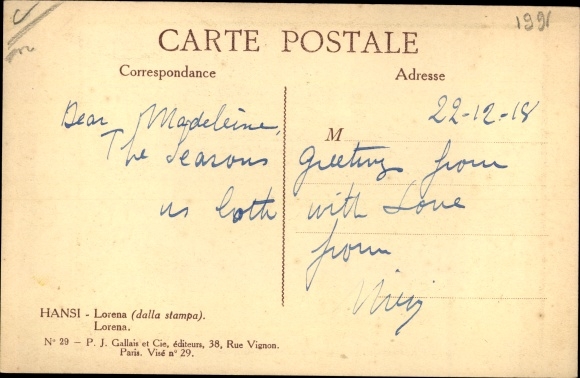 1991
CARTE POSTALE
Correspondance
Adresse
22-12-18
Dear Madeleine,
M
The Seasons Greetings from
us both with Love
from
HANSI - Lorena (dalla stampa).
Lorena.
N° 29 — P. J. Gallais et Cie, éditeurs, 38, Rue Vignon.
Paris. Visé n° 29.